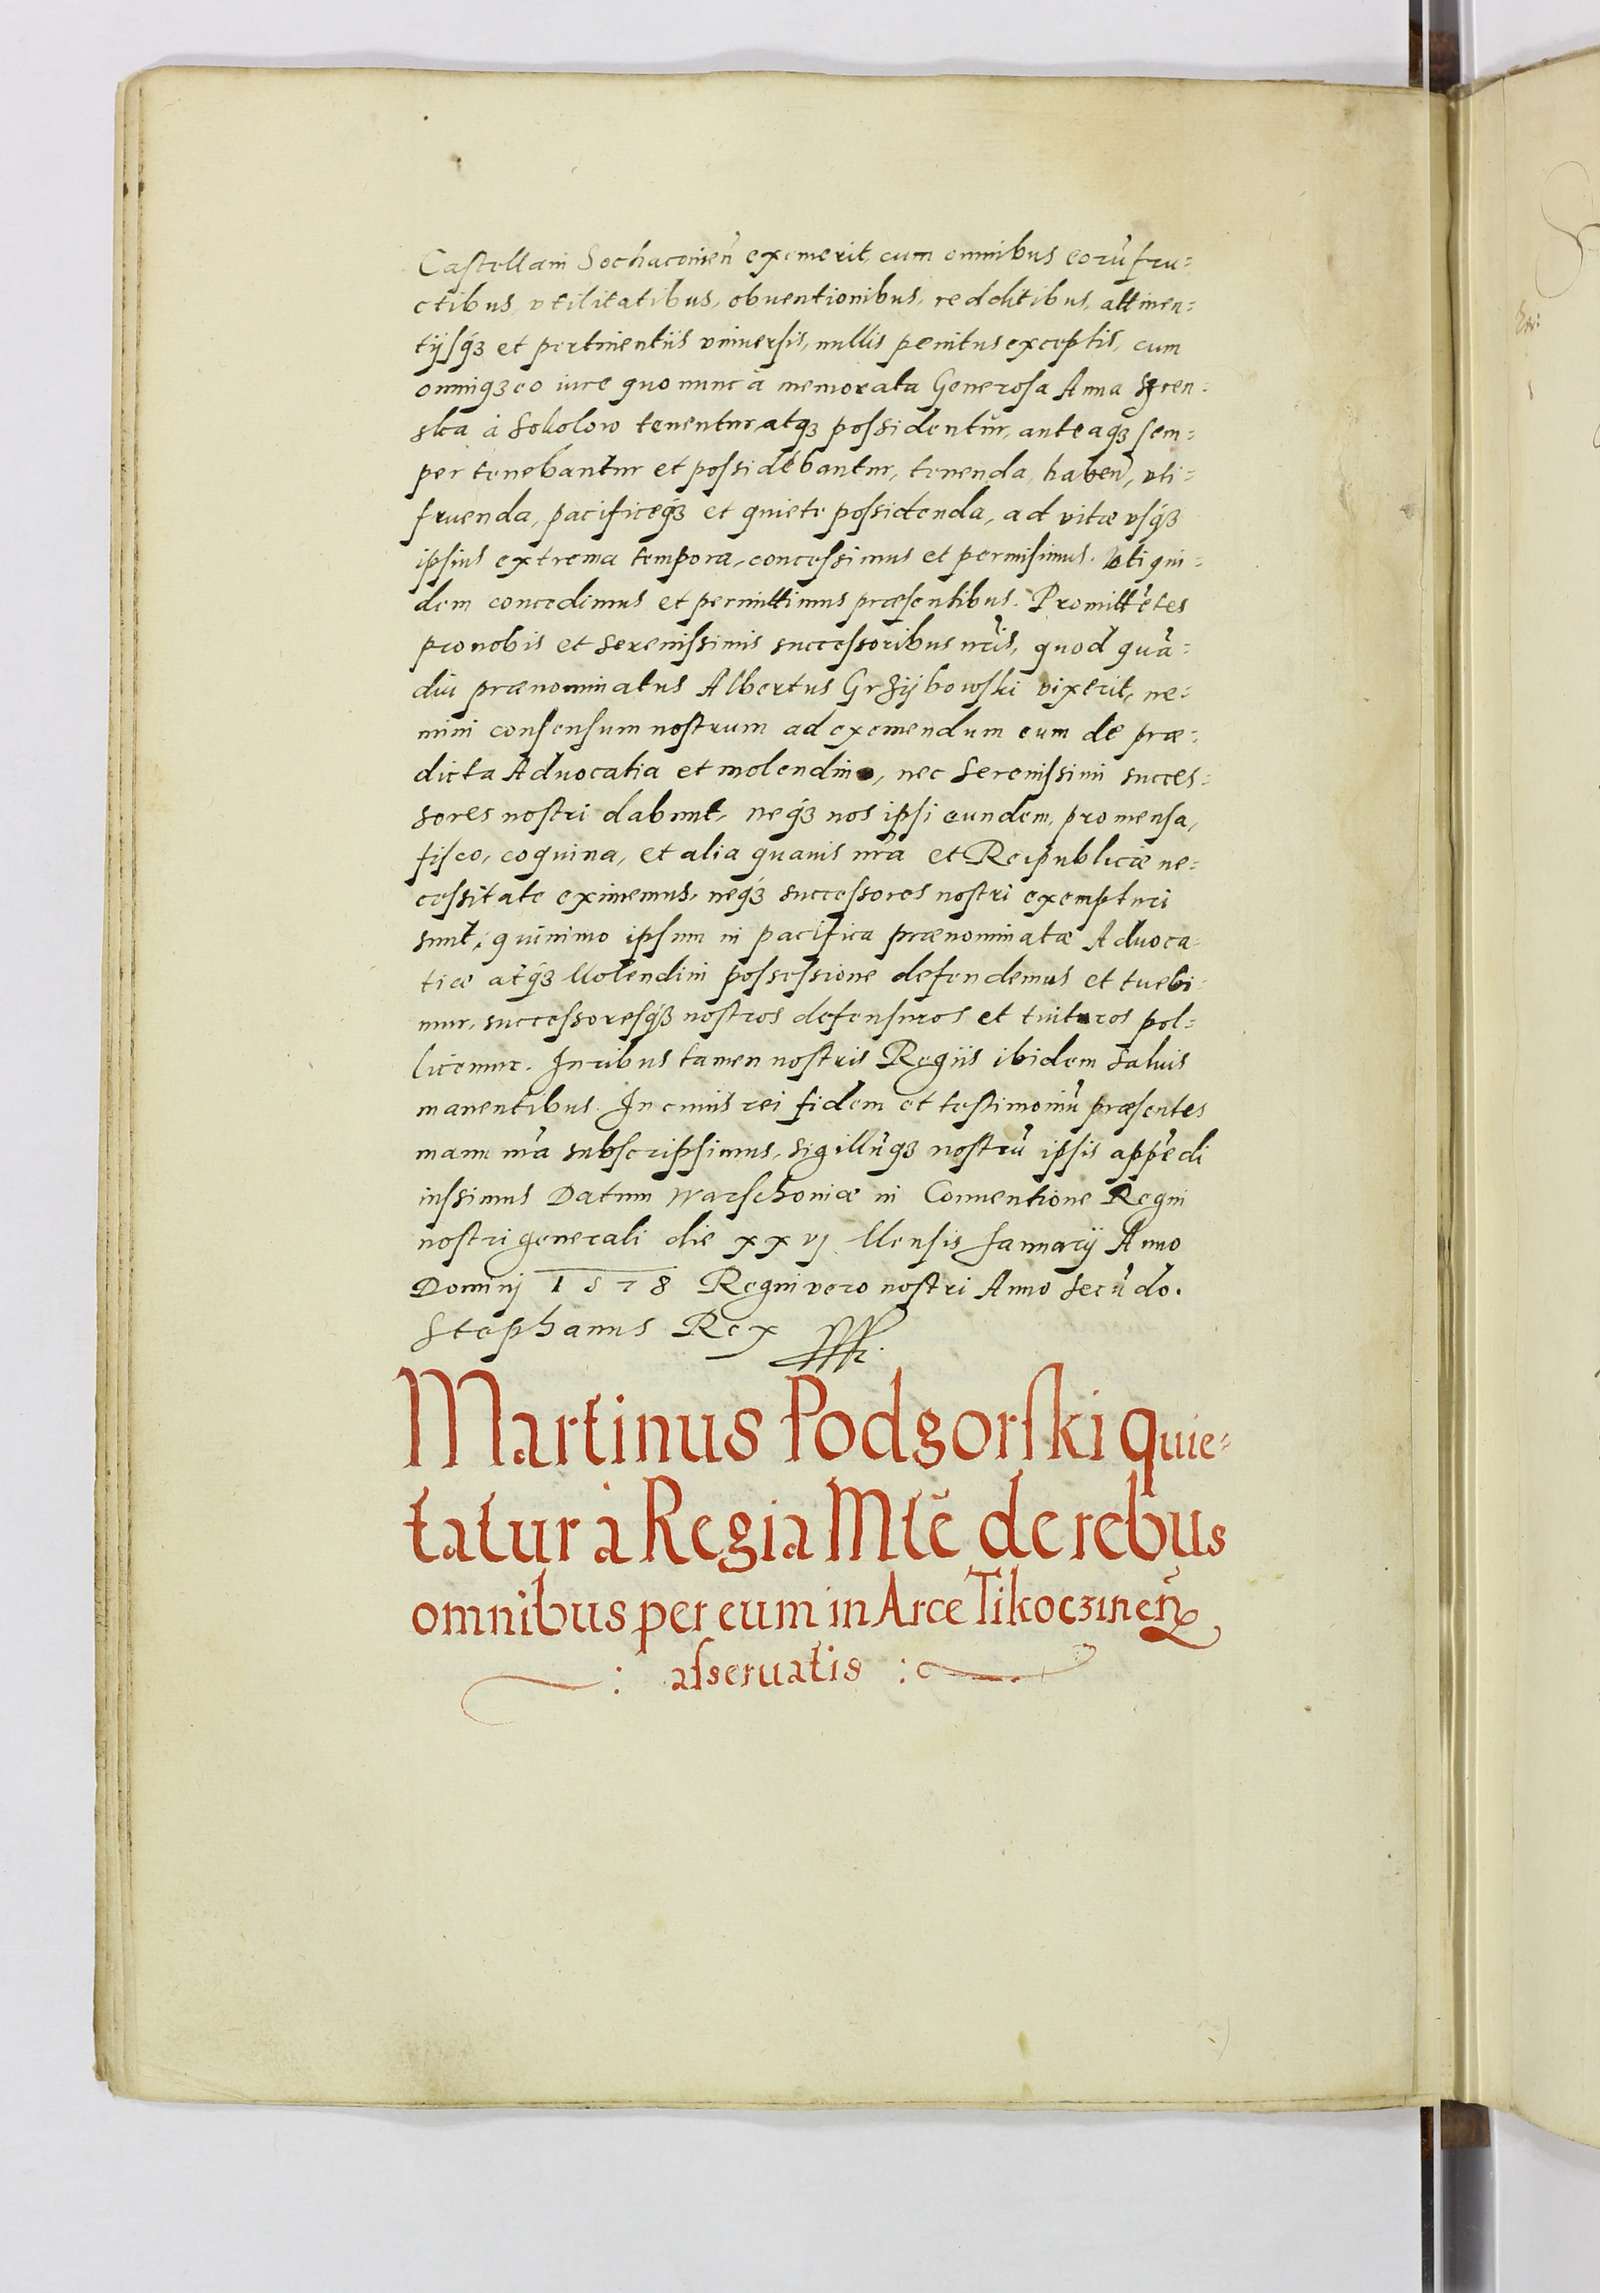 Castellani Sochacouien̄ exemerit, cum omnibus eorū fru=
ctibus, vtilitatibus, obuentionibus, redditibus, attinen=
tijsq́ꝫ et pertinentiis vniuersis, nullis penitus exceptis, cum
omniqꝫ eo iure quo nunc à memorata Generosa Anna Sren=
ska à Sokolow tenentur atqꝫ possidentur, anteaqꝫ sem=
per tenebantur et possidebantur, tenenda, haben̄, vti=
fruenda, pacificeq́ꝫ et quiete possidenda, ad vitæ vsq́ꝫ
ipsius extrema tempora, concessimus et permisimus. Vti qui=
dem concedimus et permittimus præsentibus. Promittētes
pro nobis et Serenissimis successoribus nr̄is, quod quā=
diu prænominatus Albertus Grzijbowski vixerit, ne=
mini consensum nostrum ad exemendum eum de præ=
dicta Aduocatia et molendino, nec Serenissimi succes=
sores nostri dabunt, neq́ꝫ nos ipsi eundem, pro mensa,
fisco, coquina, et alia quauis nr̄a et Reipublicæ ne=
cessitate eximemus, neq́ꝫ successores nostri exempturi
sunt, quinimo ipsum in pacifica prænominatæ Aduoca=
tiæ atq́ꝫ Molendini possessione defendemus et tuebi=
mur, successoresq́ꝫ nostros defensuros et tuituros pol=
licemur. Iuribus tamen nostris Regiis ibidem saluis
manentibus. In cuius rei fidem et testimoniū præsentes
manu nr̄a subscripsimus, sigillūqꝫ nostrū ipsis appēdi
iussimus Datum Warschouiæ in Conuentione Regni
nostri generali die xxvj Mensis Januarij Anno
Dominj 1578 Regni vero nostri Anno secūdo.
Stephanus Rex
Martinus Podgorski quie=
tatur à Regia Mtē de rebus
omnibus per eum in Arce Tikoczinen̄
: asseruatis :